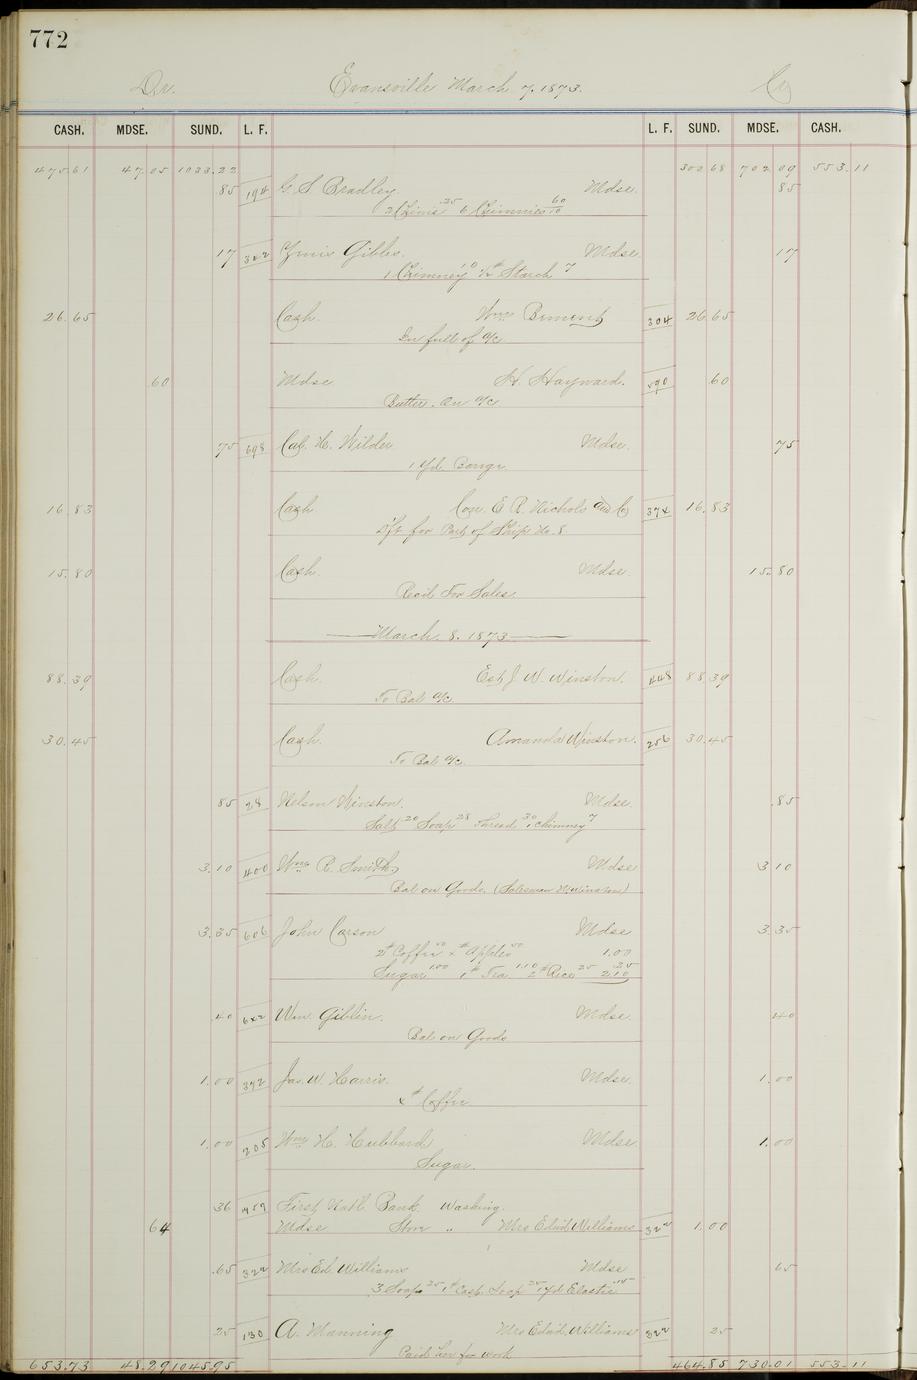 772
Dr. Evansville March 7, 1873. Cr
CASH. MDSE. SUND. L. F. L. F. SUND. MDSE. CASH.
475.61 47.05 1033.22 302.68 702.09 553.11
85 194 G. S. Bradley Mdse. 85
25 6 Chimnies 60
17 302 Gibbs. Mdse. 17
1 Chimney 10 1/2# Starch 7
26.65 Cash. Wm 304 26.65
In full of a/c
60 Mdse H. Hayward. 590 60
Butter. On a/c
75 698 Cal. H. Wilder Mdse. 75
1 Yd.
16.83 Cash Con. E. R. Nichols and Co 374 16.83
Dft for Part of Ships No. 8
15.80 Cash. Mdse. 15.80
Recd For Sales.
March. 8. 1873
88.39 Cash. Est J. W. Winston. 448 88.39
To Bal a/c.
30.45 Cash. Amanda Winston. 256 30.45
To Bal a/c.
85 28 Nelson Winston. Mdse. .85
Salt 20 Soap 28 Thread 30 1 Chimney 7
3.10 400 Wm R. Smith Mdse 3 10
Bal on Goods. (Salesman H Winston)
3.35 606 John Carson Mdse 3.35
2# Coffee 50 # Apples 50 1.00
Sugar 1.00 1# Tea 1.10 2# Rice 25 2 35
40 642 Wm. Giblin. Mdse. 40
Bal on Goods
1.00 392 Jas. W. Harris. Mdse. 1.00
# Coffee
1.00 205 Wm H. Hubbard Mdse. 1.00
Sugar.
36 459 First Natl. Bank Washing.
64 Mdse Store " Mrs Edwd Williams 322 1.00
.65 322 Mrs Ed. Williams Mdse 65
3 Soap 25 1# Cast. Soap 25 1 yd Elastic 15
25 130 A. Manning Mrs Edwd. Williams 322 25
Paid her for work
653.73 48.29 1045.95 464.85 730.01 553.11